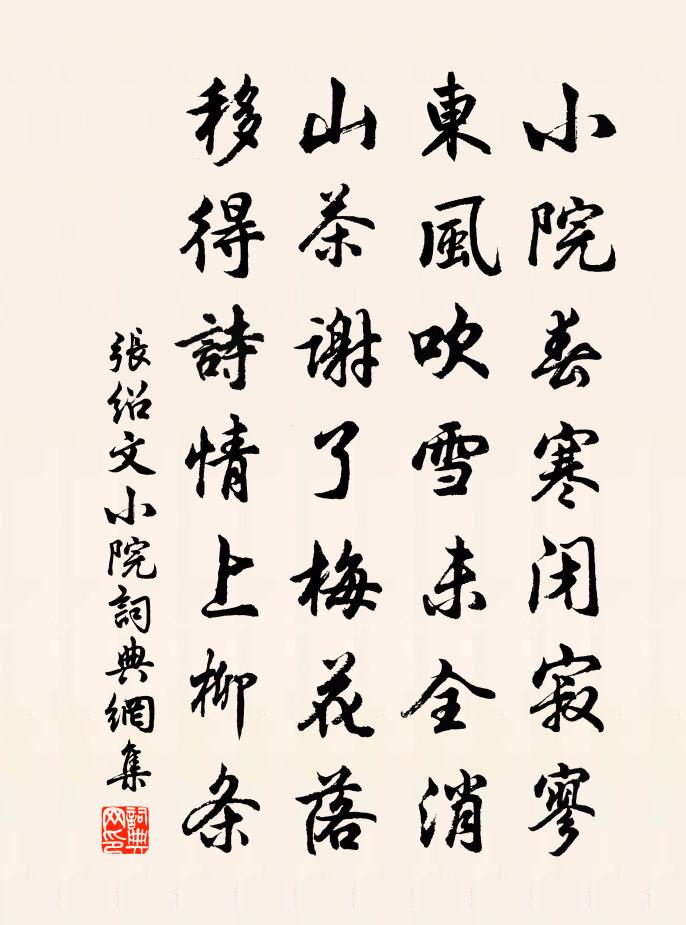 小院春寒閉寂寥
東風吹雪未全消
山茶謝了梅花落
移得詩情上柳条
張紹文小院詞典網集
詞典網印